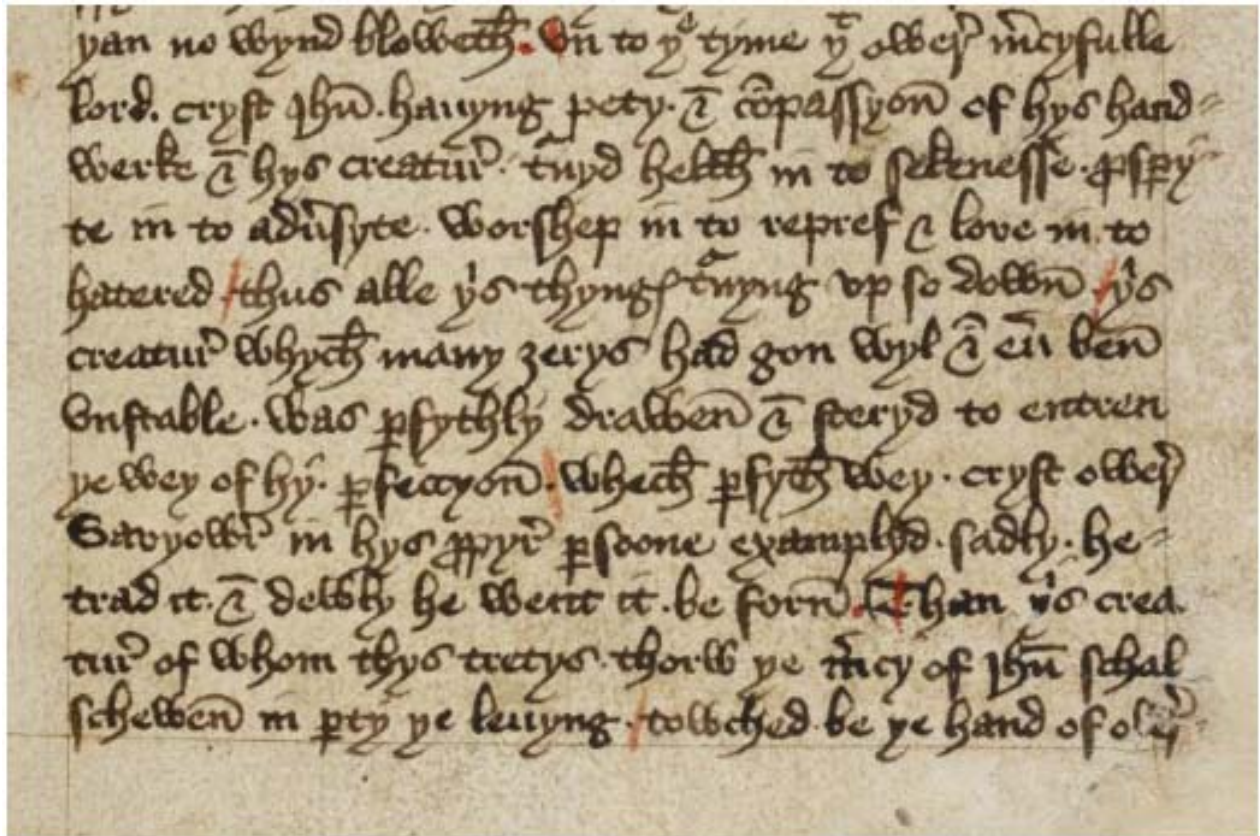 yan no wynd bloweth. Vn to yᵉ tyme yᵗ ower m̄cyfulle
lord. cryst Ihū. hauyng pety. & cōpassyon̄ of hys hand=
werke & hys creatur̉. tⁿnyd helth in to sekenesse. ꝓsꝑy
te in to adūsyte. worshep in to repref & love in to
hatered / thus alle yⁱs thyngꝭ tⁿnyng vp so down̄ / yⁱs
creatur̉ whych many ȝerys had gon wyl & eū ben̄
vnstable. was ꝑfythly drawen̄ & steryd to entren
ye wey of hy. ꝑfeccyon̄. / whech ꝑfyth wey. cryst ower̉
Savyowr̉ in hys ꝓpyr̉ ꝑsoone examplyd. sadly. he=
trad it. & dewly he went it. be forn̄. Than yⁱs crea
tur̉ of whom thys tretys. thorw ye m̄cy of Ihū schal
schewen̄ in ꝑty ye leuyng. / towched be ye hand of ower̉